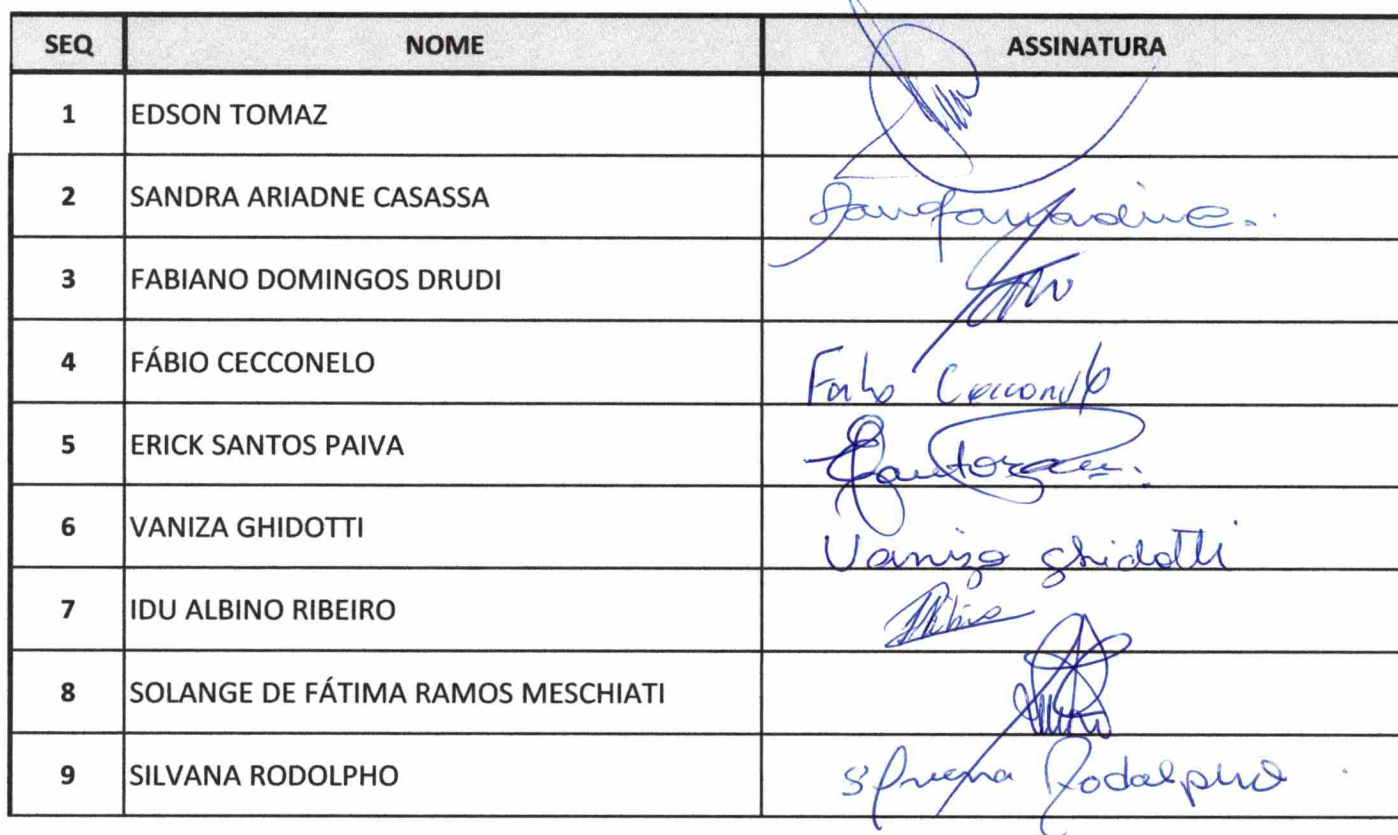 SEQ NOME ASSINATURA
1 EDSON TOMAZ
2 SANDRA ARIADNE CASASSA
3 FABIANO DOMINGOS DRUDI
4 FÁBIO CECCONELO Fabio Cecconelo
5 ERICK SANTOS PAIVA
6 VANIZA GHIDOTTI Vaniza Ghidotti
7 IDU ALBINO RIBEIRO
8 SOLANGE DE FÁTIMA RAMOS MESCHIATI
9 SILVANA RODOLPHO Silvana Rodolpho